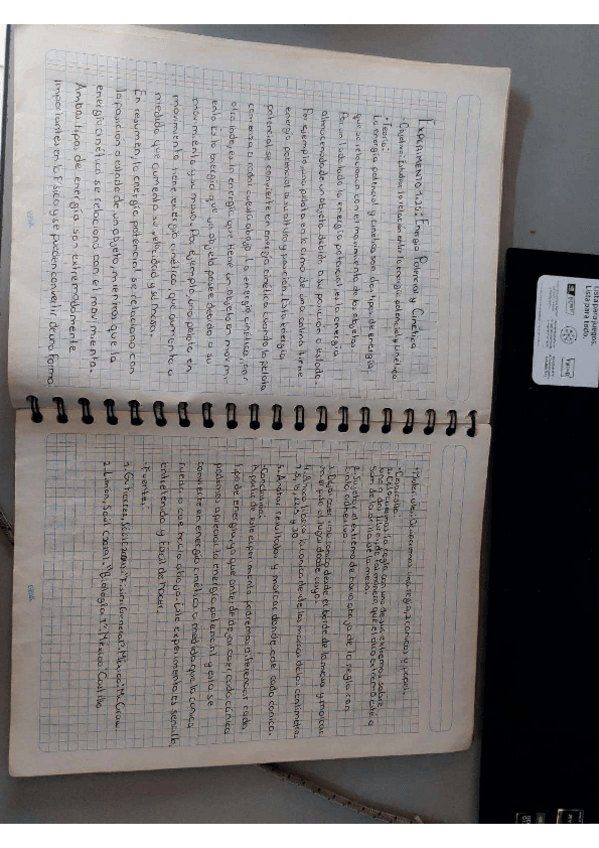 EXPERIMENTO 1.25: Energía Potencial y Cinética
• Objetivo: Estudiar la relación entre la energía potencial y cinética
• Teoría:
La energía potencial y cinética son dos tipos de energía
que se relacionan con el movimiento de los objetos.
Por un lado, la energía potencial es la energía
almacenada de un objeto debido a su posición o estado.
Por ejemplo, una pelota en la cima de una colina tiene
energía potencial a su altura y posición. Esta energía
potencial se convierte en energía cinética cuando la pelota
comienza a rodar cuesta abajo. La energía cinética, por
otro lado, es la energía que tiene un objeto en movimi-
ento. Es la energía que un objeto posee debido a su
movimiento y su masa. Por ejemplo, una pelota en
movimiento tiene energía cinética, que aumenta a
medida que aumenta su velocidad y su masa.
En resumen, la energía potencial se relaciona con
la posición o estado de un objeto, mientras que la
energía cinética se relaciona con el movimiento.
Ambos tipos de energía son extremadamente
importantes en la física y se pueden convertir de una forma
• Materiales: una regla, 2 canicas y papel.
• Desarrollo:
1. Colocaremos la regla con uno de sus extremos sobre
2. Sujetar el extremo de hacia abajo de la regla con
cinta adhesiva.
3. Dejar caer una canica desde el borde de la mesa y marcar
en el piso el lugar donde cayó.
5. Anotar resultados y marcar donde cae cada canica.
• Conclusión:
A partir de este experimento podremos diferenciar cada
tipo de energía, ya que antes de dejar caer cada canica
podemos apreciar la energía potencial y esta se
convierte en energía cinética a medida que la canica
rueda o cae hacia abajo. Este experimento es sencillo,
entretenido y fácil de hacer.
• Fuentes:
1. Gutierrez, "Física General" México: Mc Graw
2. Limon, Saúl "Biología 1" México: Castillo
Lista para juegos.
Lista para todo.